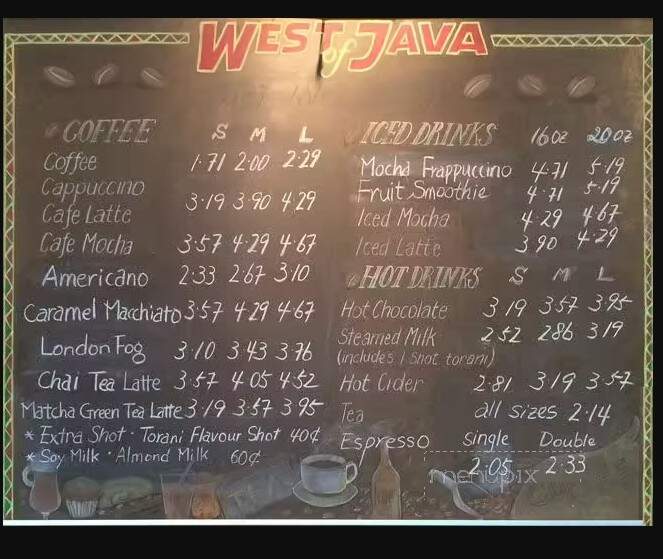 WEST of JAVA
COFFEE S M L
Coffee 1.71 2.00 2.29
Cappuccino
Cafe Latte 3.19 3.90 4.29
Cafe Mocha 3.57 4.29 4.67
Americano 2.33 2.67 3.10
Caramel Macchiato 3.57 4.29 4.67
London Fog 3.10 3.43 3.76
Chai Tea Latte 3.57 4.05 4.52
Matcha Green Tea Latte 3.19 3.57 3.95
* Extra Shot · Torani Flavour Shot 40¢
* Soy Milk · Almond Milk 60¢
ICED DRINKS 16oz 20oz
Mocha Frappuccino 4.71 5.19
Fruit Smoothie 4.71 5.19
Iced Mocha 4.29 4.67
Iced Latte 3.90 4.29
HOT DRINKS S M L
Hot Chocolate 3.19 3.57 3.95
Steamed Milk 2.52 2.86 3.19
(includes 1 shot torani)
Hot Cider 2.81 3.19 3.57
Tea all sizes 2.14
Espresso Single Double
2.05 2.33
menupix